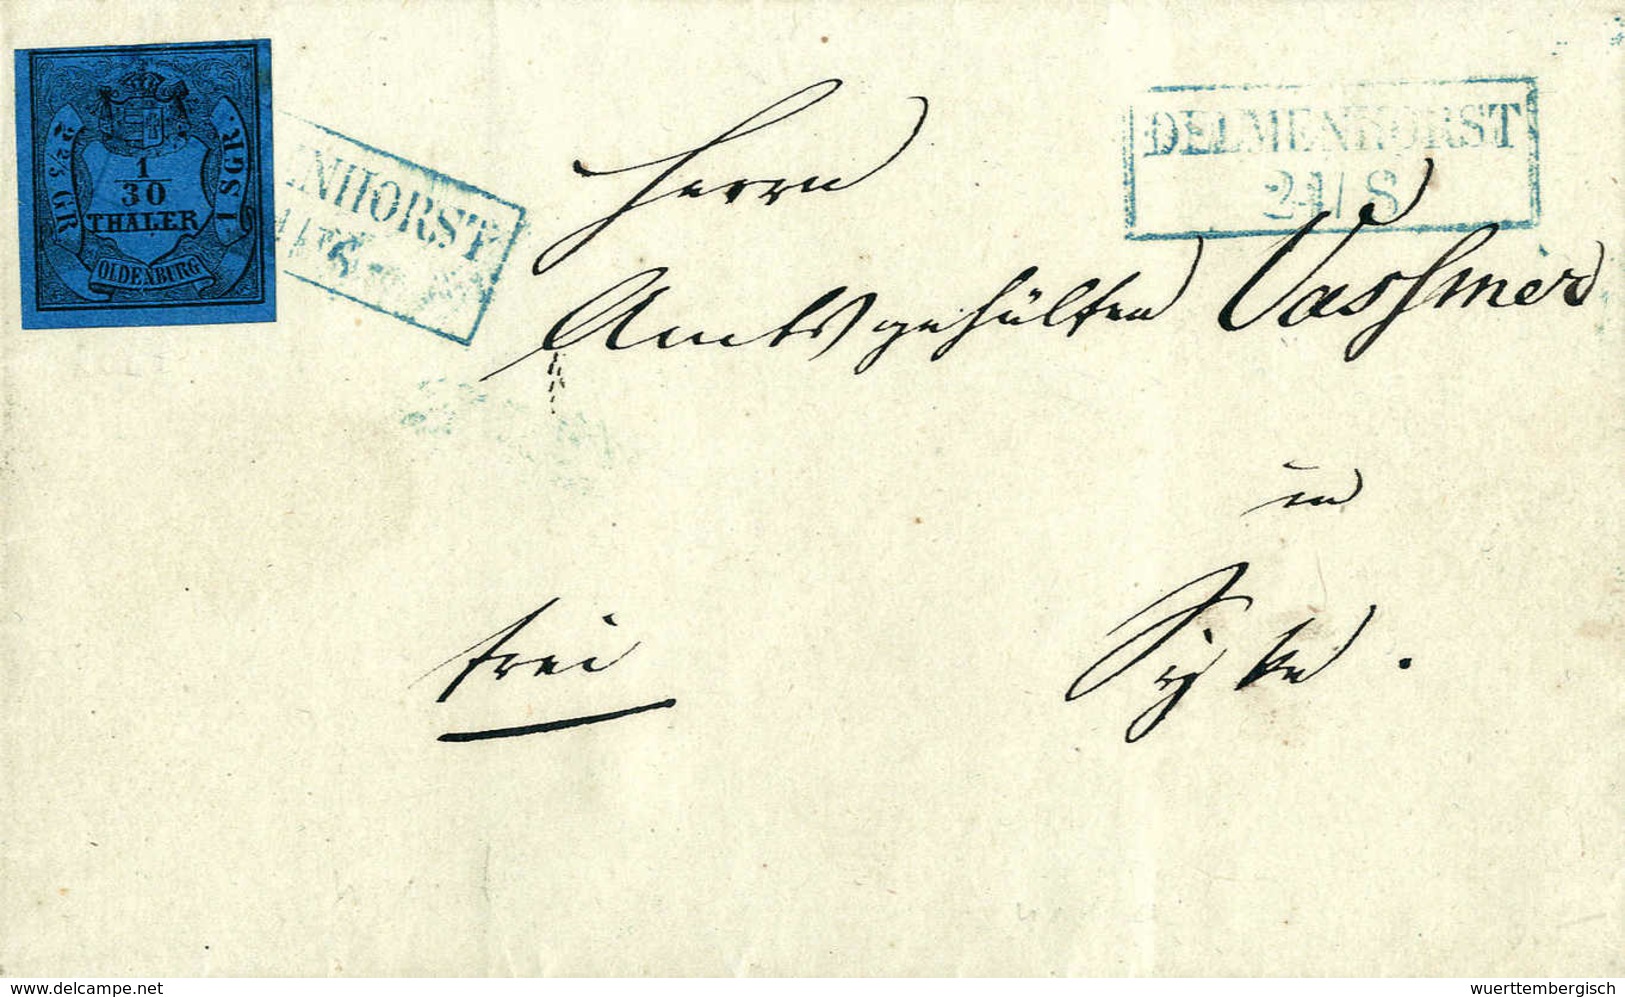 2 2/5 GR.
1/30
THALER
1 SGR.
OLDENBURG
ENHORST
DELMENHORST
24/8
Herrn
Amtsgehülfen Vassmer
in
Syke.
frei
© delcampe.net
wuerttembergisch